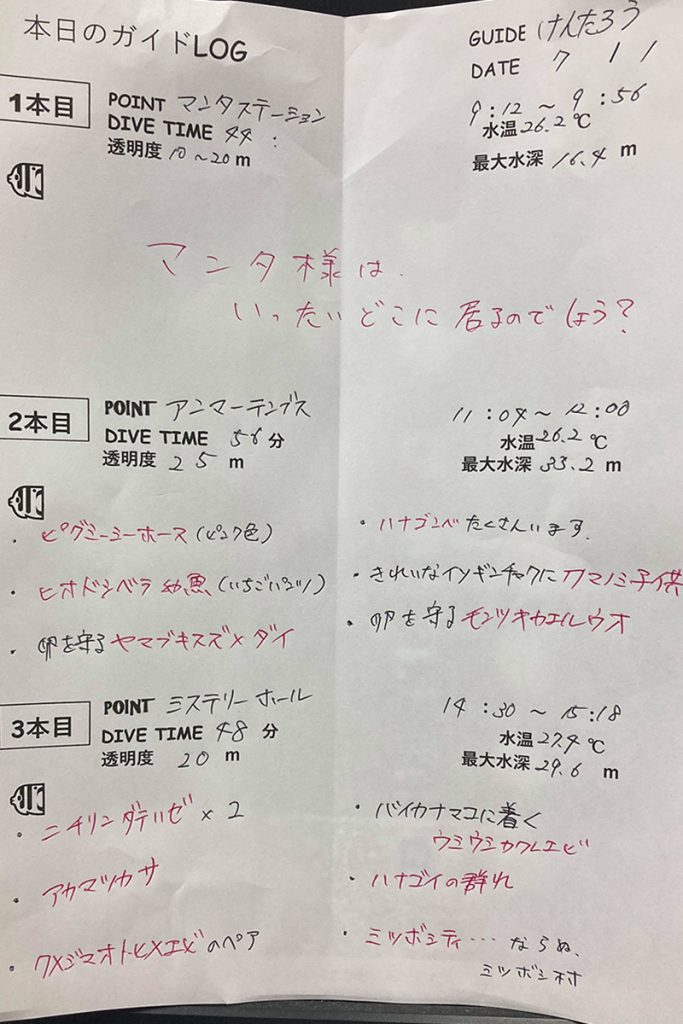 本日のガイドLOG
GUIDE けんたろう
DATE 7 11
1本目
POINT マンタステーション
DIVE TIME 44 :
透明度 10~20 m
9:12 ~ 9:56
水温 26.2℃
最大水深 16.4 m
マンタ様は
いったいどこに居るのでしょう?
2本目
POINT アンマーテンブス
DIVE TIME 56 分
透明度 25 m
11:04~12:00
水温 26.2℃
最大水深 33.2 m
・ピグミーシーホース(ピンク色)
・ヒオドシベラ 幼魚(いちごパンツ)
・卵を守るヤマブキスズメダイ
・ハナゴンベたくさんいます.
・きれいなイソギンチャクにクマノミ子供
・卵を守るモンツキカエルウオ
3本目
POINT ミステリーホール
DIVE TIME 48 分
透明度 20 m
14:30 ~ 15:18
水温 27.4℃
最大水深 29.6 m
・ニチリンダテハゼ×2
・アカマツカサ
・クメジマオトヒメエビのペア
・バイカナマコに着く
ウミウシカクレエビ
・ハナゴイの群れ
・ミツボシティ…ならぬ、
ミツボシ村